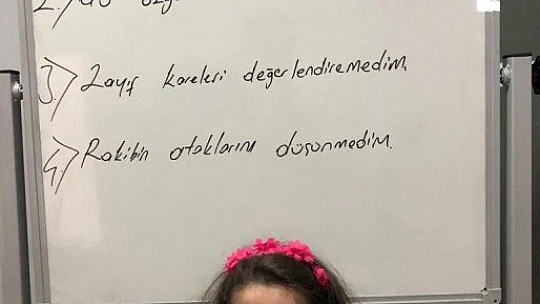 3.) Zayıf kareleri değerlendiremedim.
4.) Rakibin ataklarını düşünmedim.